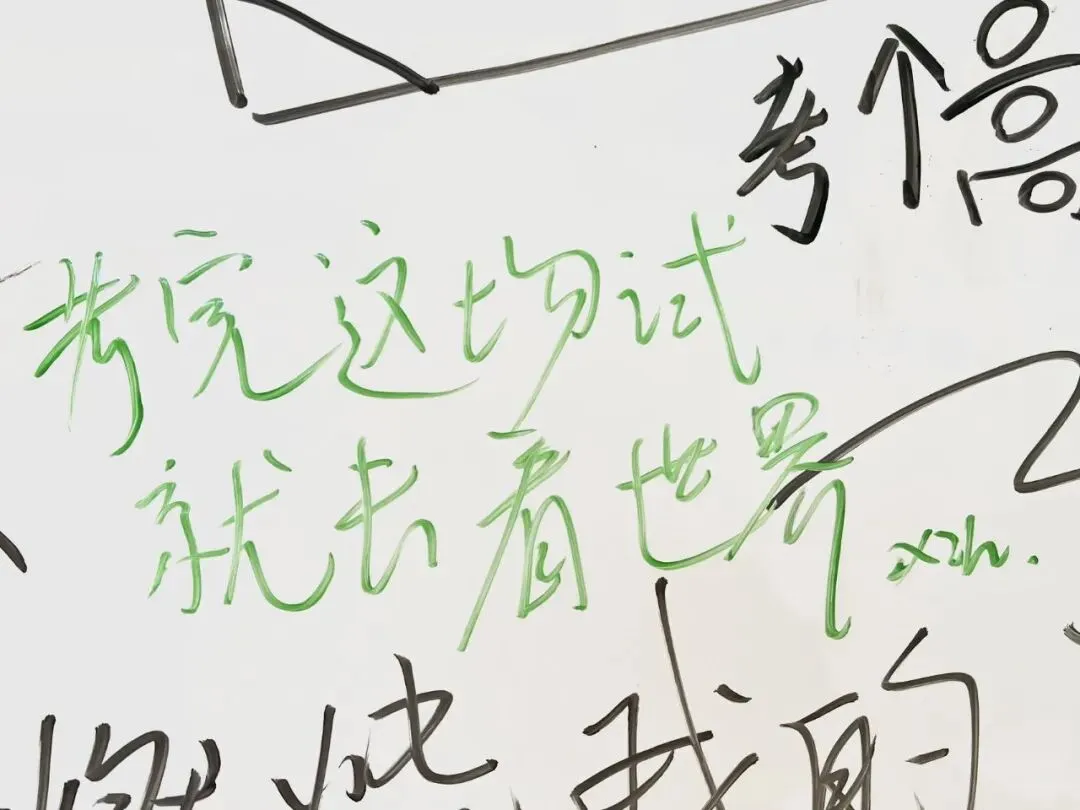 考个高
考完这场试
就去看世界 xzh.
燃烧我的